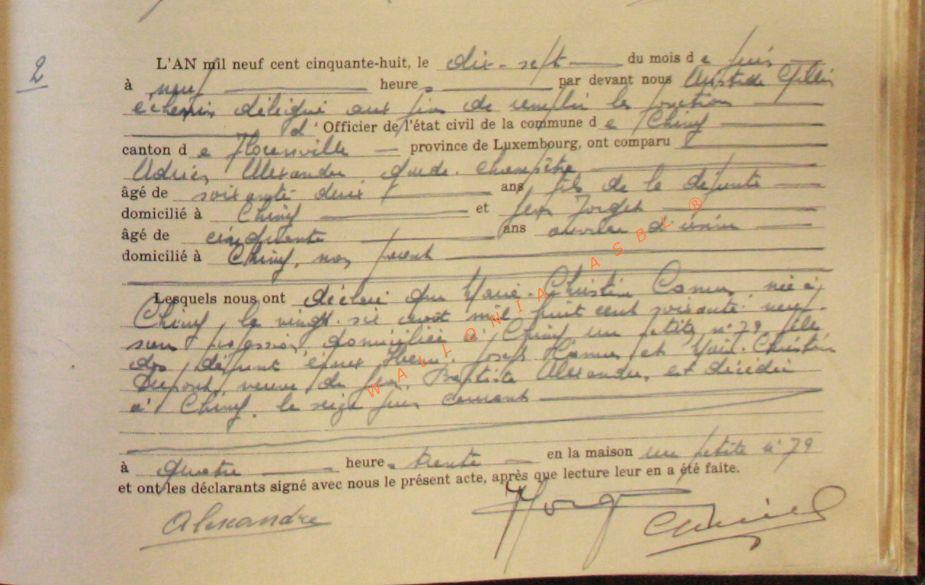 2
L'AN mil neuf cent cinquante-huit, le dix-sept du mois de juin
à neuf heures par devant nous Aristide
échevin délégué aux fins de remplir les fonctions
d'Officier de l'état civil de la commune de Chiny
canton de Florenville province de Luxembourg, ont comparu
Adrien Alexandre garde-champêtre
âgé de soixante deux ans fils de la défunte
domicilié à Chiny et Jean
âgé de cinquante ans ouvrier d'usine
domicilié à Chiny, non parent
Lesquels nous ont déclaré que Marie-Christine née à
Chiny, le vingt-six août mil huit cent soixante-neuf
sans profession domiciliée à Chiny rue petite n° 79, fille
des défunts époux Joseph et Marie-Christine
Dupont veuve de Jean-Baptiste Alexandre, est décédée
à Chiny, le seize juin courant
à quatre heures trente en la maison rue petite n° 79
et ont les déclarants signé avec nous le présent acte, après que lecture leur en a été faite.
Alexandre
WALLONIA ASBL ®